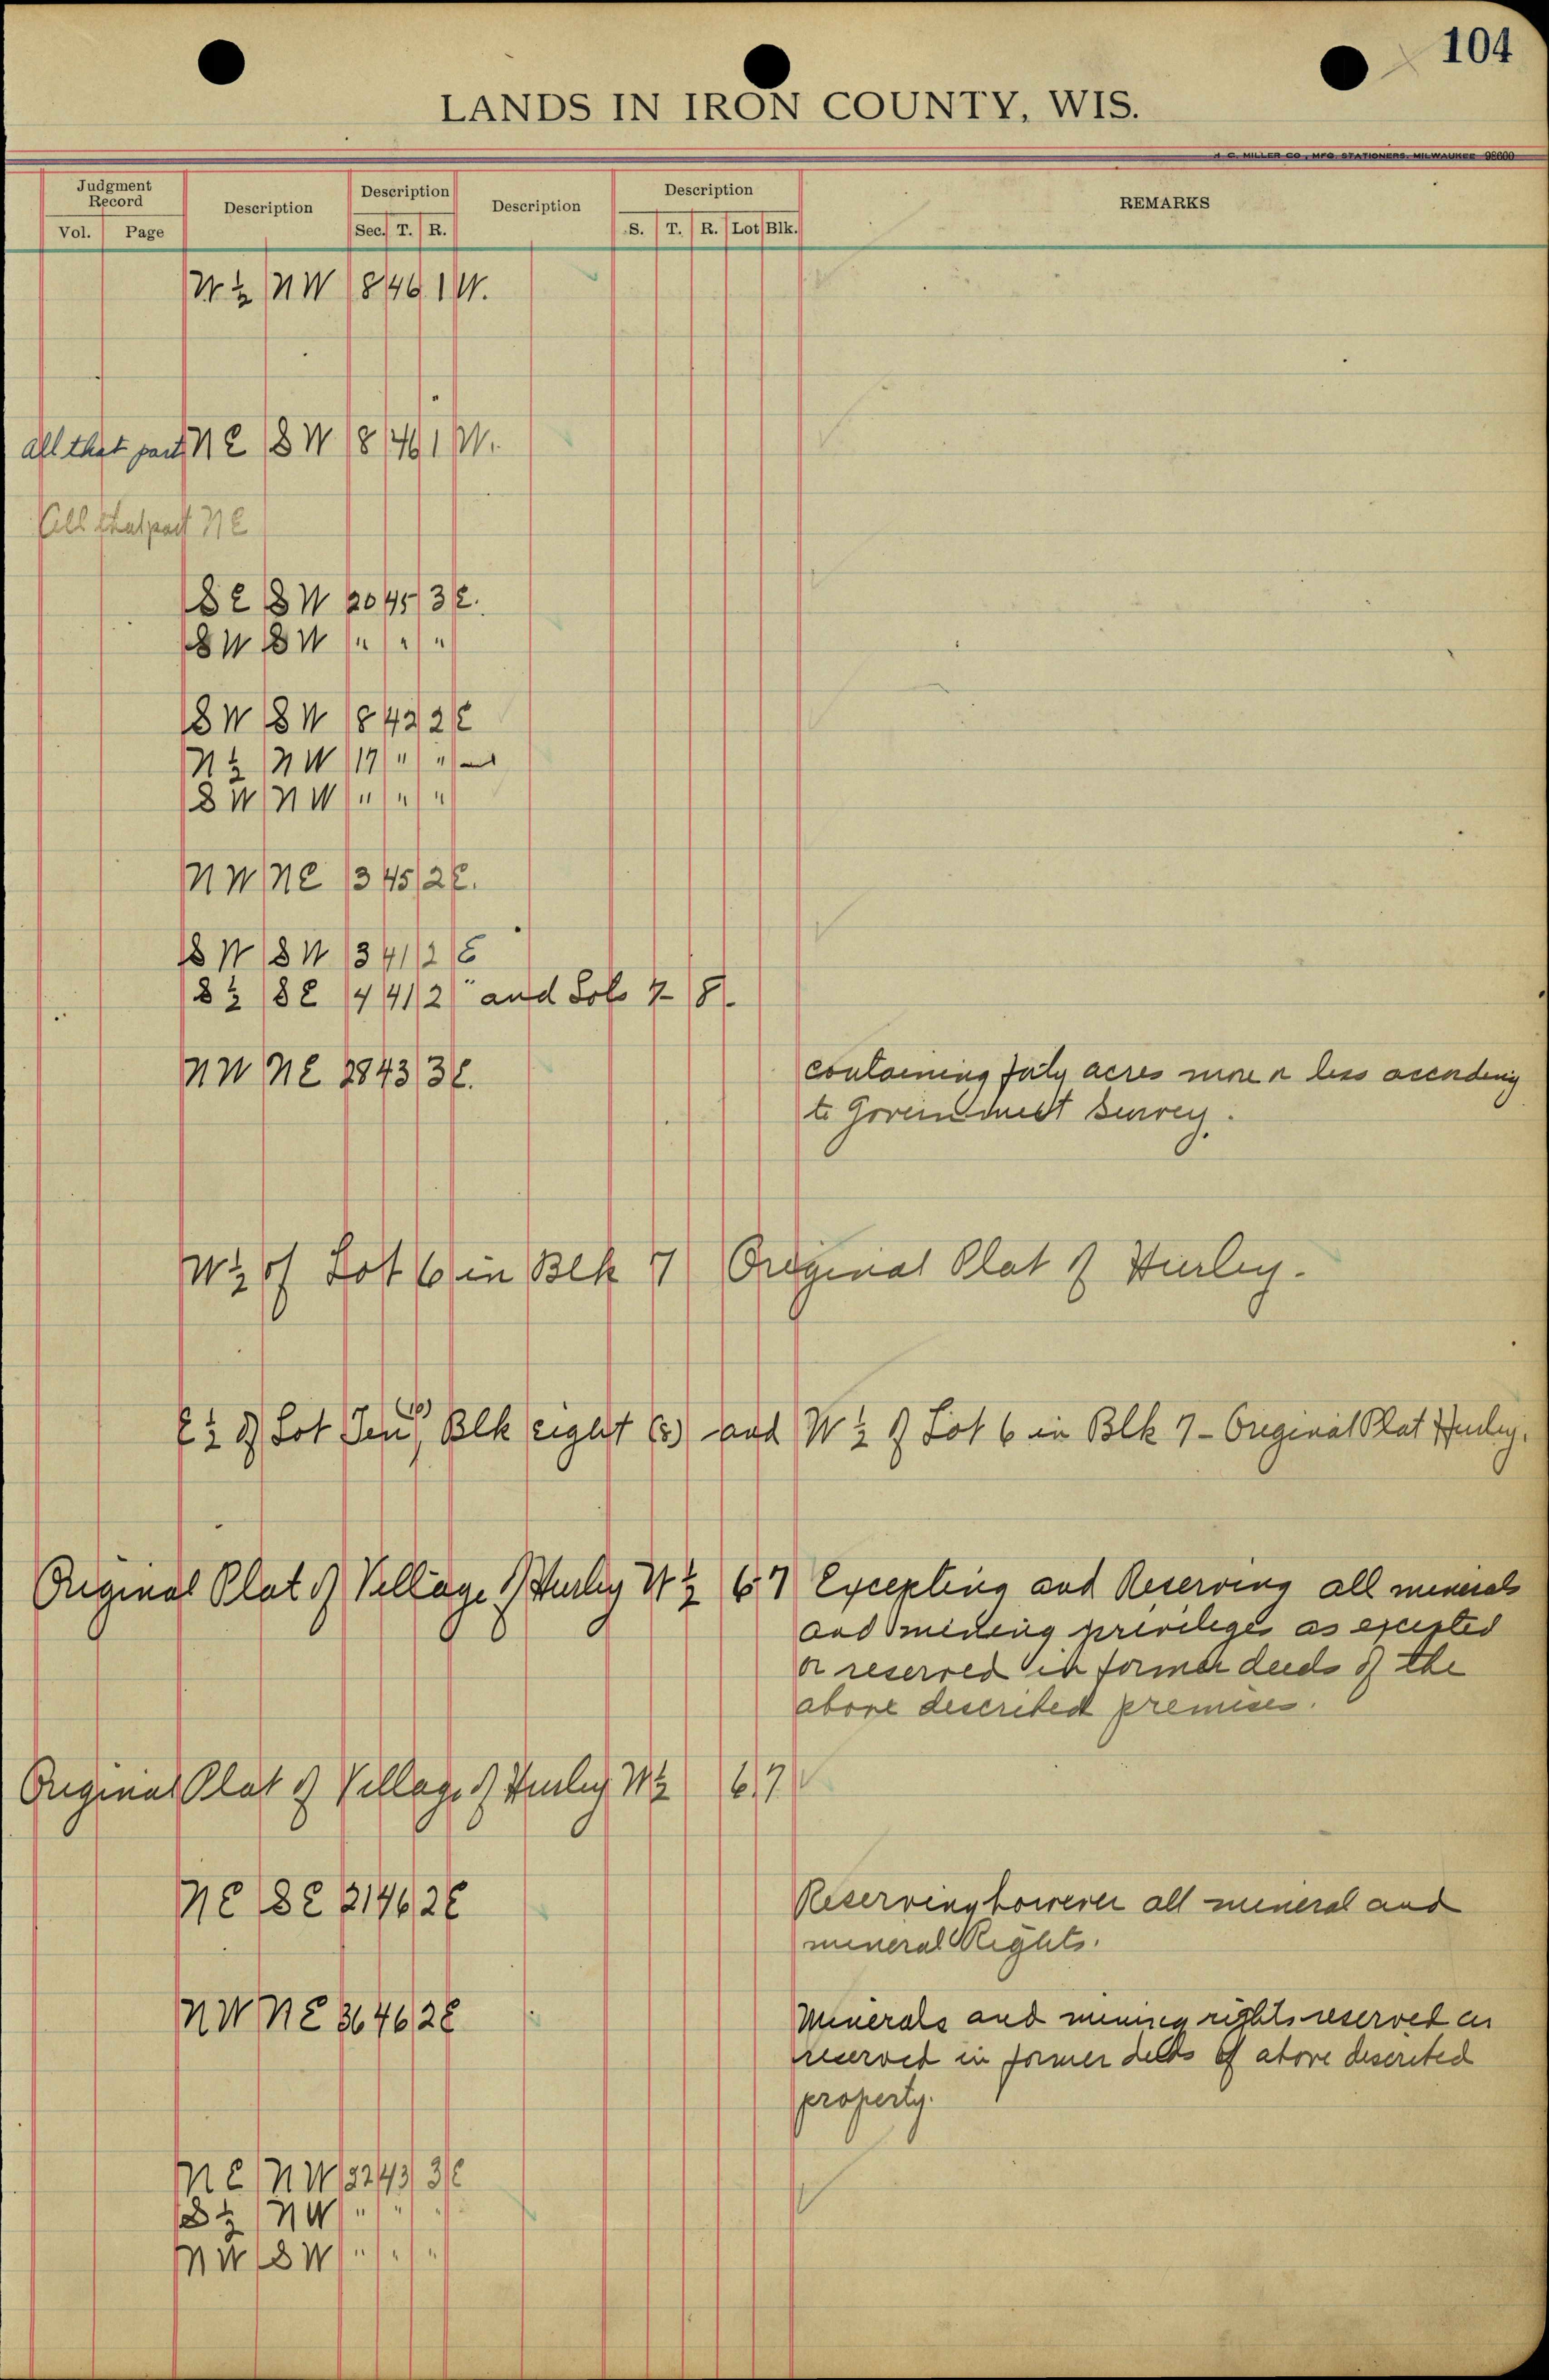 104
LANDS IN IRON COUNTY, WIS.
H. C. MILLER CO., MFG. STATIONERS, MILWAUKEE 98600
Judgment Record Description Description Description Description REMARKS
Vol. Page Sec. T. R. S. T. R. Lot Blk.
½ NW 8 46 1 W.
All that part NE SW 8 46 1 W.
All that part NE
SE SW 20 45 3 E.
SW SW " " "
SW SW 8 42 2 E
N ½ NW 17 " " and
SW NW " " "
NW NE 3 45 2 E.
SW SW 3 41 2 E
S ½ SE 4 41 2 " and Lots 7-8.
NW NE 28 43 3 E. containing forty acres more or less according
to Government Survey.
W ½ of Lot 6 in Blk 7 Original Plat of Hurley.
E ½ of Lot Ten (10), Blk eight (8) and W ½ of Lot 6 in Blk 7 - Original Plat Hurley.
Original Plat of Village of Hurley W ½ 6 7 Excepting and Reserving all minerals
and mining privileges as excepted
or reserved in former deeds of the
above described premises.
Original Plat of Village of Hurley W ½ 6 7
NE SE 21 46 2 E Reserving however all mineral and
mineral Rights.
NW NE 36 46 2 E Minerals and mining rights reserved as
reserved in former deeds of above described
property.
NE NW 32 43 3 E
S ½ NW " " "
NW SW " " "